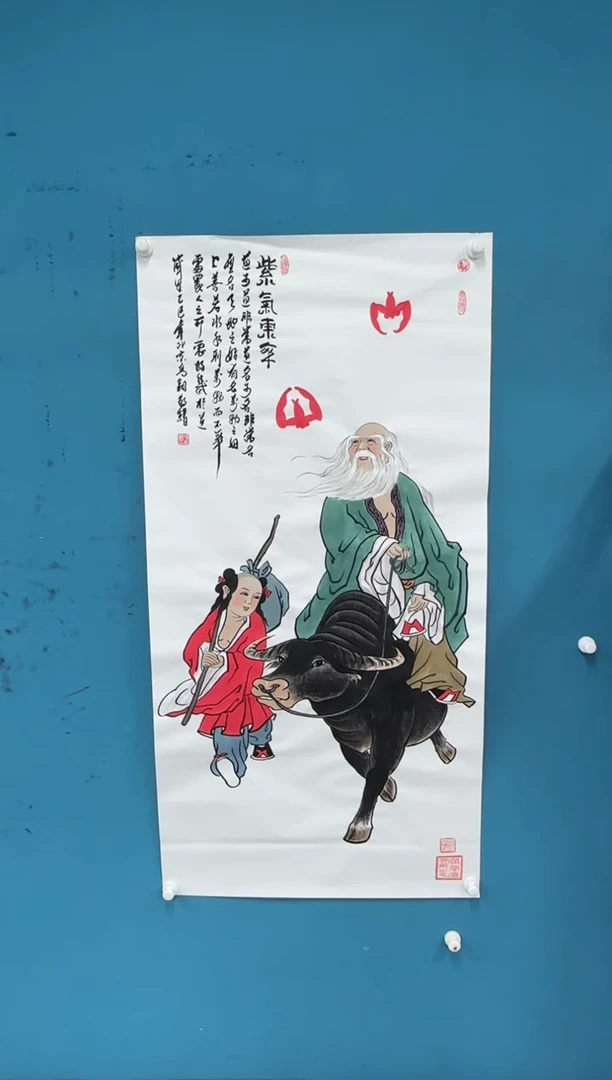 紫氣東來
道可道非常道名可名非常名
無名天地之始有名萬物之母
上善若水水利萬物而不爭
處眾人之所惡故幾於道
乙巳年